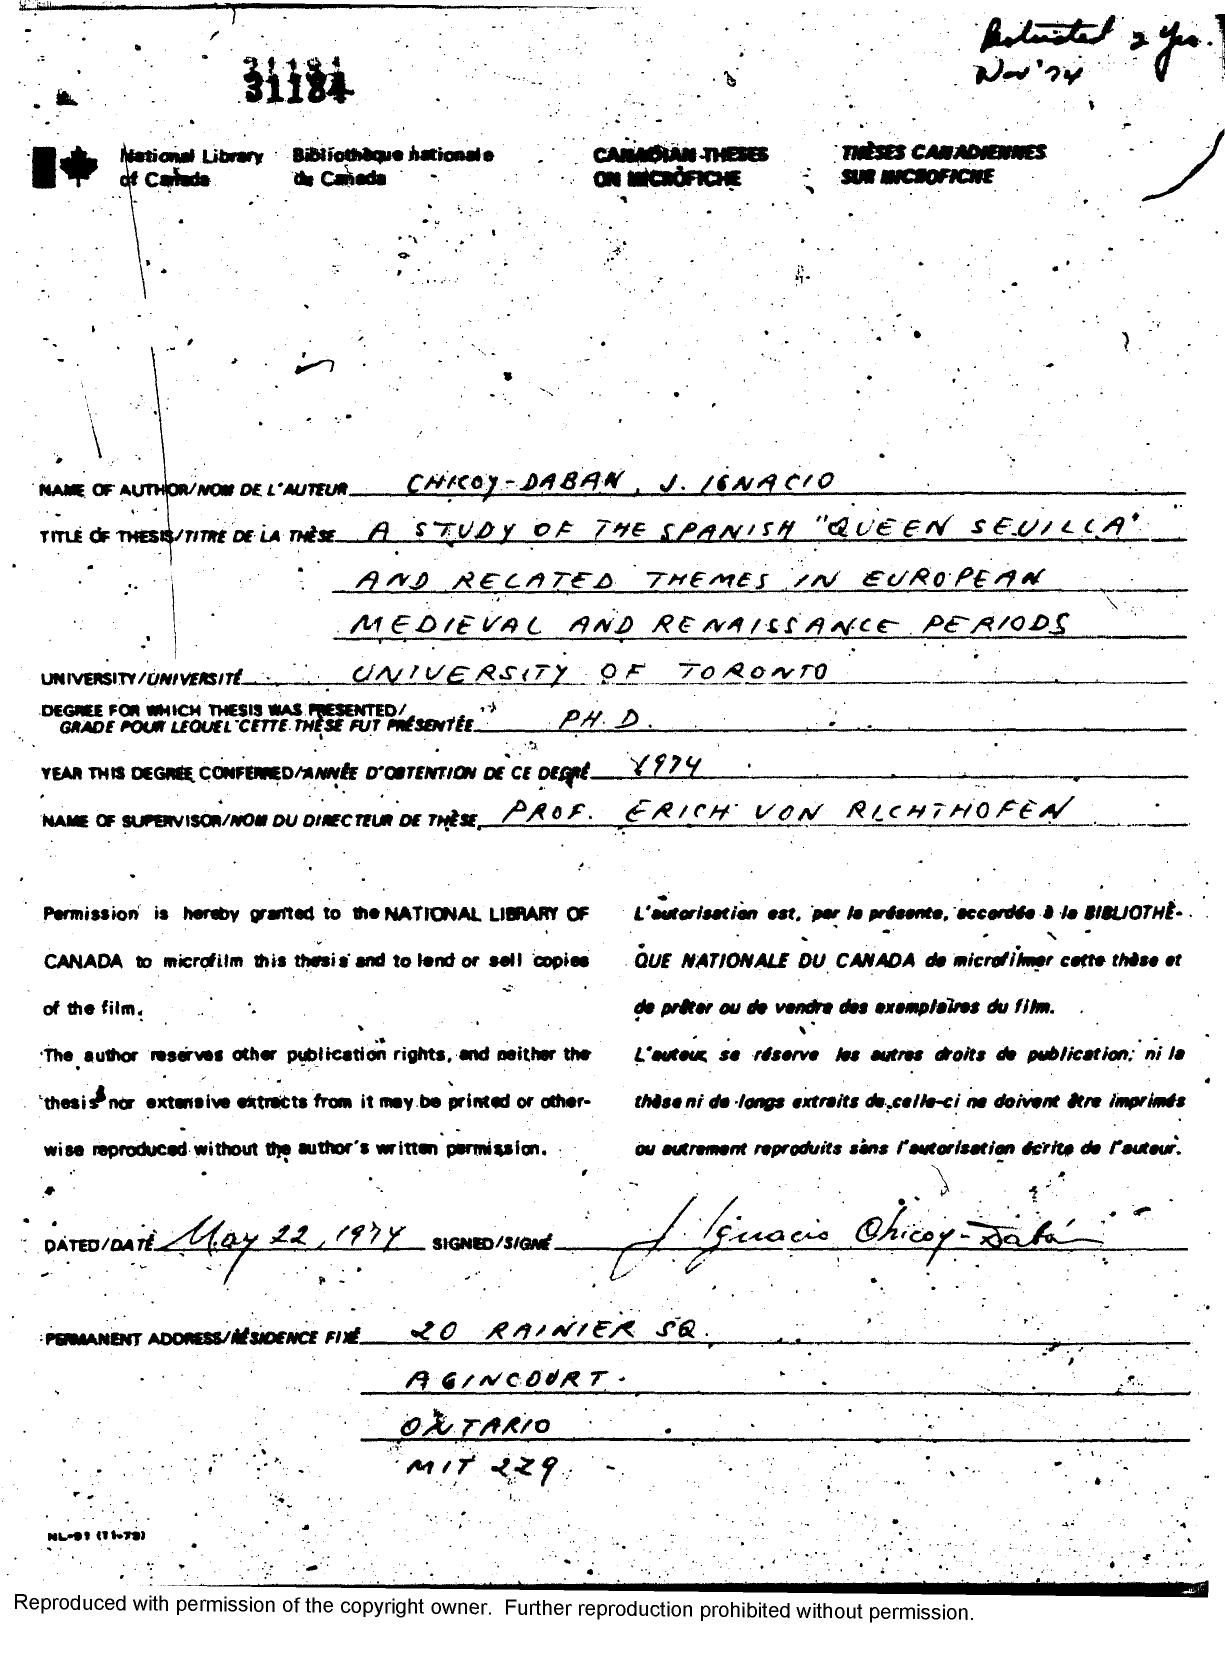 Restricted 2 Yrs.
Nov '74
31184
National Library Bibliothèque nationale CANADIAN THESES THÈSES CANADIENNES
of Canada du Canada ON MICROFICHE SUR MICROFICHE
NAME OF AUTHOR/NOM DE L'AUTEUR CHICOY-DABAN, J. IGNACIO
TITLE OF THESIS/TITRE DE LA THÈSE A STUDY OF THE SPANISH "QUEEN SEVILLA"
AND RELATED THEMES IN EUROPEAN
MEDIEVAL AND RENAISSANCE PERIODS
UNIVERSITY/UNIVERSITÉ UNIVERSITY OF TORONTO
DEGREE FOR WHICH THESIS WAS PRESENTED/
GRADE POUR LEQUEL CETTE THÈSE FUT PRÉSENTÉE PH. D.
YEAR THIS DEGREE CONFERRED/ANNÉE D'OBTENTION DE CE DEGRÉ 1974
NAME OF SUPERVISOR/NOM DU DIRECTEUR DE THÈSE PROF. ERICH VON RICHTHOFEN
Permission is hereby granted to the NATIONAL LIBRARY OF
CANADA to microfilm this thesis and to lend or sell copies
of the film.
The author reserves other publication rights, and neither the
thesis nor extensive extracts from it may be printed or other-
wise reproduced without the author's written permission.
L'autorisation est, par la présente, accordée à la BIBLIOTHÈ-
QUE NATIONALE DU CANADA de microfilmer cette thèse et
de prêter ou de vendre des exemplaires du film.
L'auteur se réserve les autres droits de publication; ni la
thèse ni de longs extraits de celle-ci ne doivent être imprimés
ou autrement reproduits sans l'autorisation écrite de l'auteur.
DATED/DATÉ May 22, 1974 SIGNED/SIGNÉ J. Ignacio Chicoy-Dabán
PERMANENT ADDRESS/RÉSIDENCE FIXÉ 20 RAINIER SQ.
AGINCOURT.
ONTARIO
M1T 2Z9
NL-91 (11-73)
Reproduced with permission of the copyright owner. Further reproduction prohibited without permission.